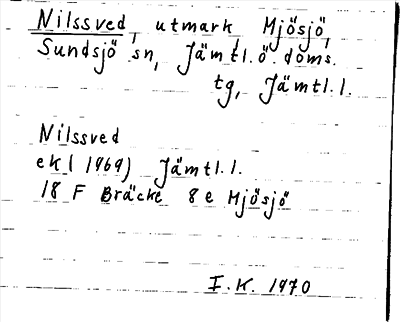 Nilssved, utmark, Mjösjö,
Sundsjö sn, Jämtl.ö. doms.
tg, Jämtl.l.
Nilssved
ek ( 1969) Jämtl.l.
18 F Bräcke 8 e Mjösjö
I.K. 1970